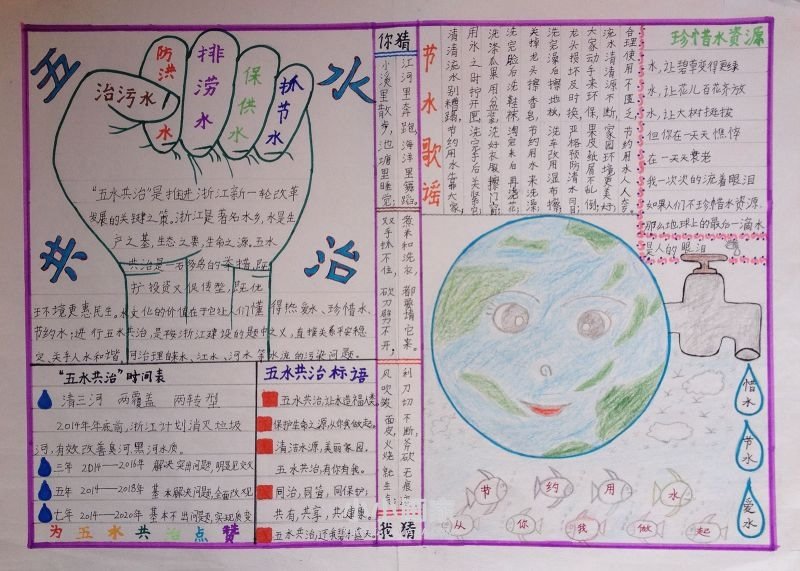 五水共治
治污水
防洪水
排涝水
保供水
抓节水
"五水共治"是推进浙江新一轮改革
发展的关键之策。浙江是著名水乡,水是生
产之基,生态之要,生命之源。五水
共治是一石多鸟的举措,既
扩投资又促转型,既优
环境更惠民生。水文化的价值在于它让人们懂得热爱水、珍惜水、
节约水;进行五水共治,是按浙江建设的题中之义,直接关系平安稳
定、关乎人水和谐,河治理的来水、江水、河水等水流的污染问题。
"五水共治"时间表
清三河 两覆盖 两转型
2014年年底前,浙江计划消灭垃圾
河,有效改善臭河黑河水质。
三年 2014——2016年 解决突出问题,明显见效
五年 2014——2018年 基本解决问题,全面改观
七年 2014——2020年 基本不出问题,实现质变
为五水共治点赞
五水共治标语
五水共治,让水造福人类
保护生命之源,从你我做起。
清洁水源,美丽家园,
五水共治,有你有我。
同治,同管,同保护,
共有,共享,共健康。
五水共治,还我碧水蓝天。
你猜
江河里奔跑,海洋里舞蹈,
小溪里散步,池塘里睡觉;
煮来和洗衣,都要请它来。
双手抓不住,砍刀劈不开,
剁刀切不断,斧砍无痕
风吹皱面皮,火烧就生
我猜
节水歌谣
合理使用不匮乏,节约用水人人夸;
流水不断
家园环境更美好;
大家动手来环保,果皮纸屑不乱倒,
龙头损坏及时换,严格预防清水
洗完澡后擦地板,洗车改用湿布擦;
关掉龙头擦香皂,节约用水来洗澡;
洗完脸后洗鞋袜,淘完米后再浇花;
洗涤瓜果用盆装
用水之时拧开
清清流水别糟蹋,节约用水靠大家,
珍惜水资源
水,让碧草变得更绿
水,让花儿百花齐放
水,让大树挺拔
但你在一天天憔悴
在一天天衰老
我一次次的流着眼泪
如果人们不珍惜水资源
那么地球上的最后一滴水
是人的眼泪
惜水
节水
爱水
节约用水
从你我做起